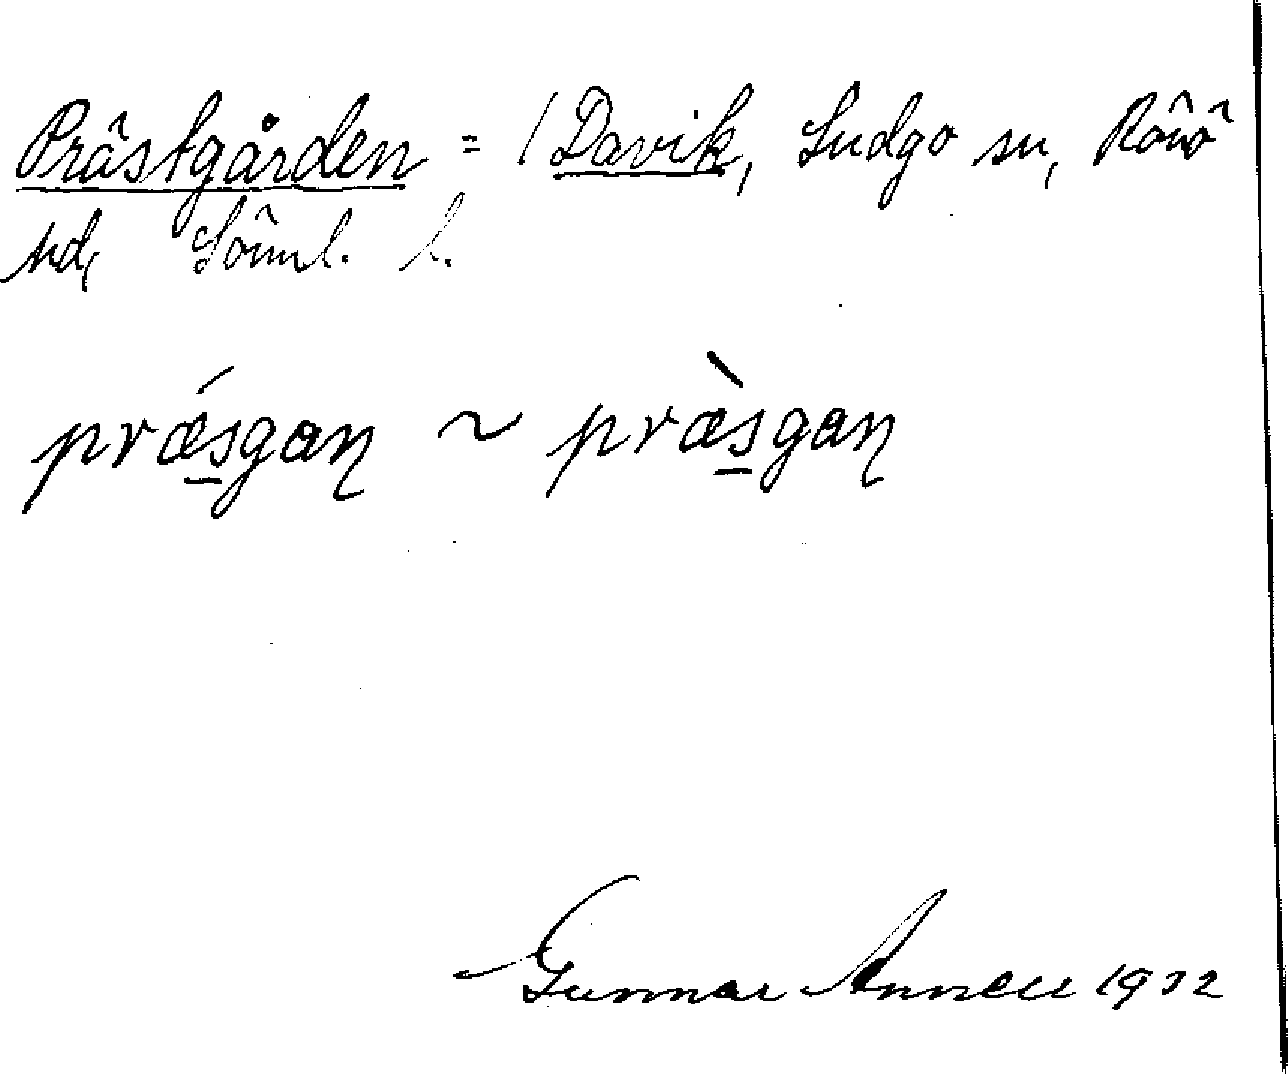 Prästgården = 1 Davik, Ludgo sn, Rönö
hd, Söml. l.
prǽsgaɳ ~ præ̀sgaɳ
Gunnar Annell 1932